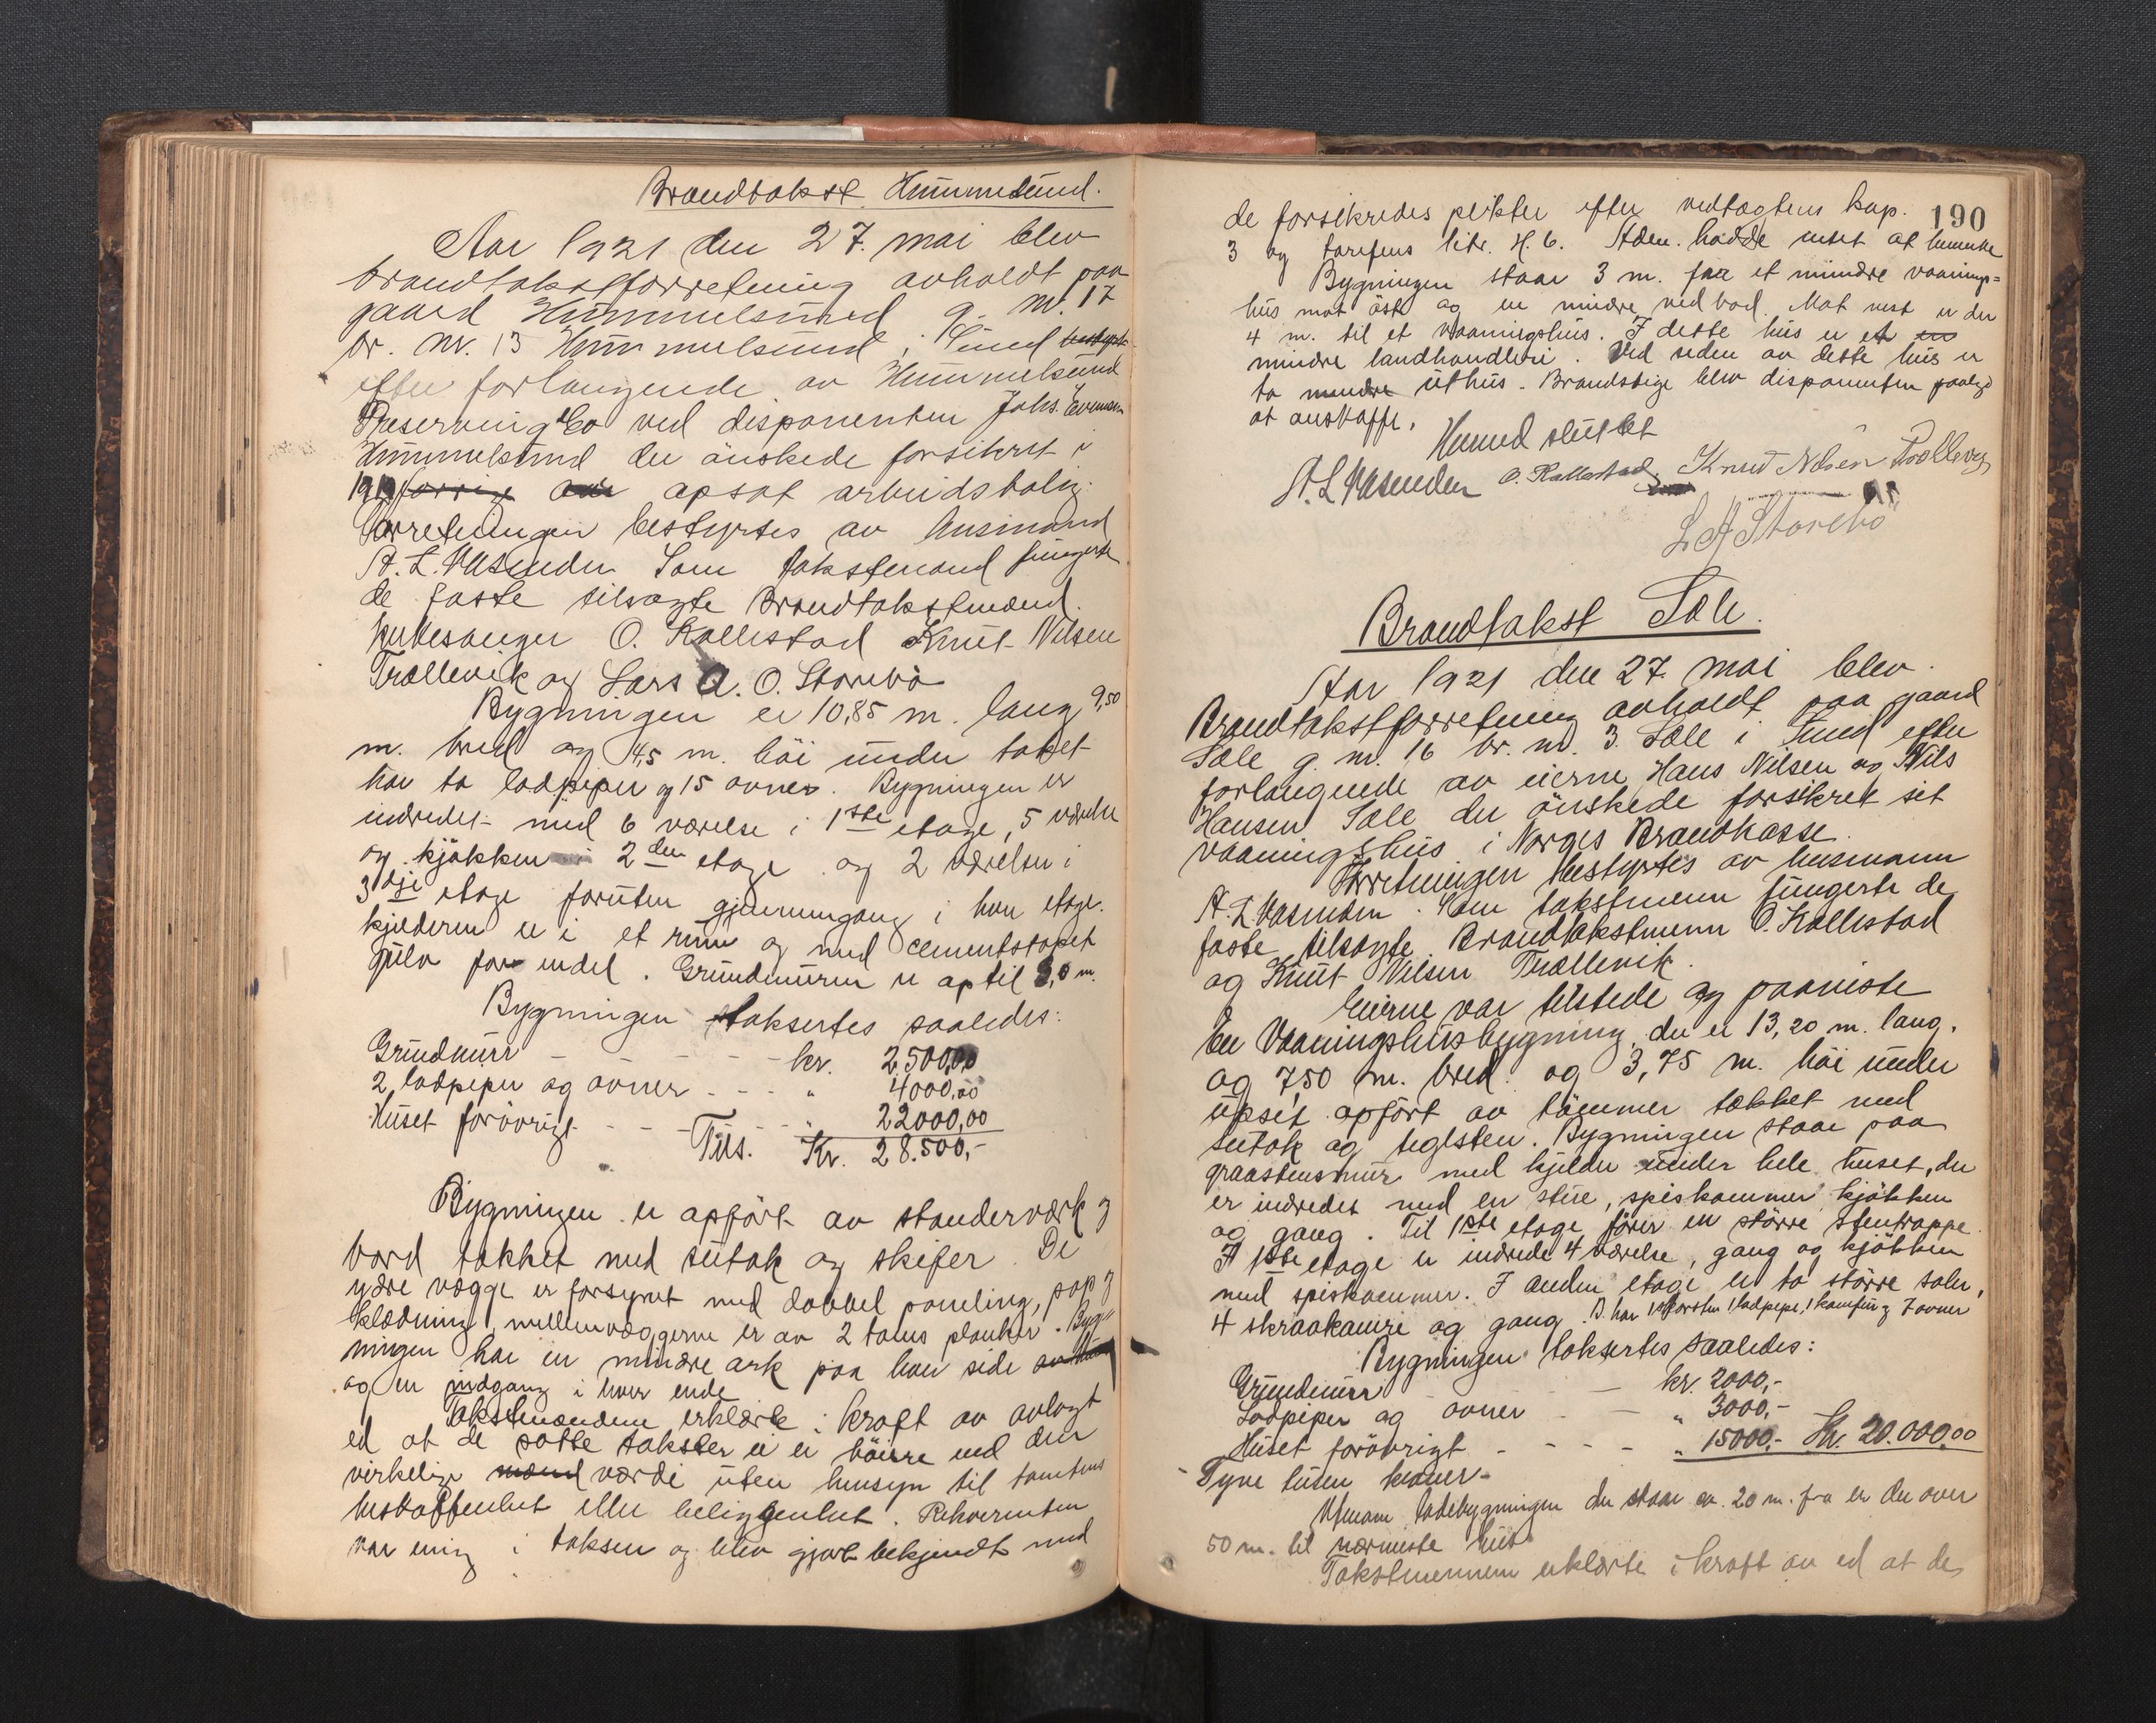 Brandtakst Hummelsund.
Aar 1921 den 27. mai blev
brandtakstforretning avholdt paa
gaard Hummelsund g. nr. 17
br. nr. 13 Hummelsund i Sund
efter forlangende av Hummelsund
Preserving Co ved disponenten Johs.
Hummelsund der önskede forsikret i
opsat arbeidsbolig.
Forretningen bestyrtes av lensmand
A. L. Vasenden Som takstmænd fungerte
de faste tilvagte Brandtakstmænd.
O. Kallestad Knut Nilsen
Trællevik og Lars A. O. Storebö
Bygningen er 10,85 m. lang 9,50
m. bred og 4,5 m. höi under taket
har to ladpiper og 15 ovner. Bygningen er
indredet med 6 værelse i 1ste etage, 5 værelse
og kjökken i 2den etage og 2 værelser i
3dje etage foruten gjennemgang i hver etage.
kjelderen er i et rum og med cementstöpet
gulv for endel. Grundmuren er optil 3,0 m.
Bygningen taksertes saaledes:
Grundmur - - - - kr. 2500,00
2 ladpiper og ovner - - - " 4000,00
Huset forövrigt - - - - " 22000,00
Tils. Kr. 28.500,-
Bygningen er opfört av standerværk og
bord tækket med sutak og skifer. De
ydre vægge er forsynet med dobbel paneling, pap og
klædning, mellemvæggerne er av 2 toms planker. Byg=
ningen har en mindre ark paa hver side
og en indgang i hver ende
Takstmændene erklærte i kraft av avlagt
ed at de satte takster ei er höiere end den
virkelige værdi uten hensyn til tomtens
beskaffenhet eller beliggenhet. Rekvirenten
var enig i taksten og blev gjort bekjendt med
190
de forsikredes pligter efter vedtægtens kap.
3 og tarifens litr. H. 6. Aden. hadde intet at bemerke
Bygningen staar 3 m. fra et mindre vaanings=
hus mot öst og en mindre vedbod. Mot vest er der
4 m. til et vaaningshus. I dette hus er et
mindre landhandleri. Ved siden av dette hus er
to mindre uthus. Brandstige blev disponenten paalagt
at anskaffe.
Hermed sluttet
A. L. Vasenden O. Kallestad Knut Nilsen Trællevig
L A Storebö
Brandtakst Tæle.
Aar 1921 den 27. mai blev
Brandtakstforretning avholdt paa gaard
Tæle g. nr. 16 br. nr. 3. Tæle i Sund efter
forlangende av eierne Hans Nilsen og Nils
Hansen Tæle der önskede forsikret sit
vaaningshus i Norges Brandkasse.
Forretningen bestyrtes av lensmann
A. L. Vasenden. Som takstmenn fungerte de
faste tilvagte Brandtakstmenn O. Kallestad
og Knut Nilsen Trællevik.
Eierne var tilstede og paaviste
En Vaaningshusbygning der er 13,20 m. lang,
og 7,50 m. bred og 3,75 m. höi under
upset opfört av tömmer tækket med
sutak og teglsten. Bygningen staar paa
graastensmur med kjelder under hele huset, der
er indredet med en stue, spiskammer kjökken
og gang. Til 1ste etage förer en större stentrappe
I 1ste etage er indrede 4 værelse, gang og kjökken
med spiskammer. I anden etage er to större saler,
4 skraakamre og gang. B. har 1 skorsten 1 ladpipe, 1 komfur og 7 ovner
Bygningen taksertes saaledes:
Grundmur - - kr. 2000,-
Ladpiper og ovner - - " 3000,-
Huset forövrigt - - - - " 15000,- Kr. 20.000,00
Tyve tusen kroner-
Utenom ladebygningen der staar ca. 20 m. fra er der over
50 m. til nærmeste hus
Takstmennene erklærte i kraft av ed at de